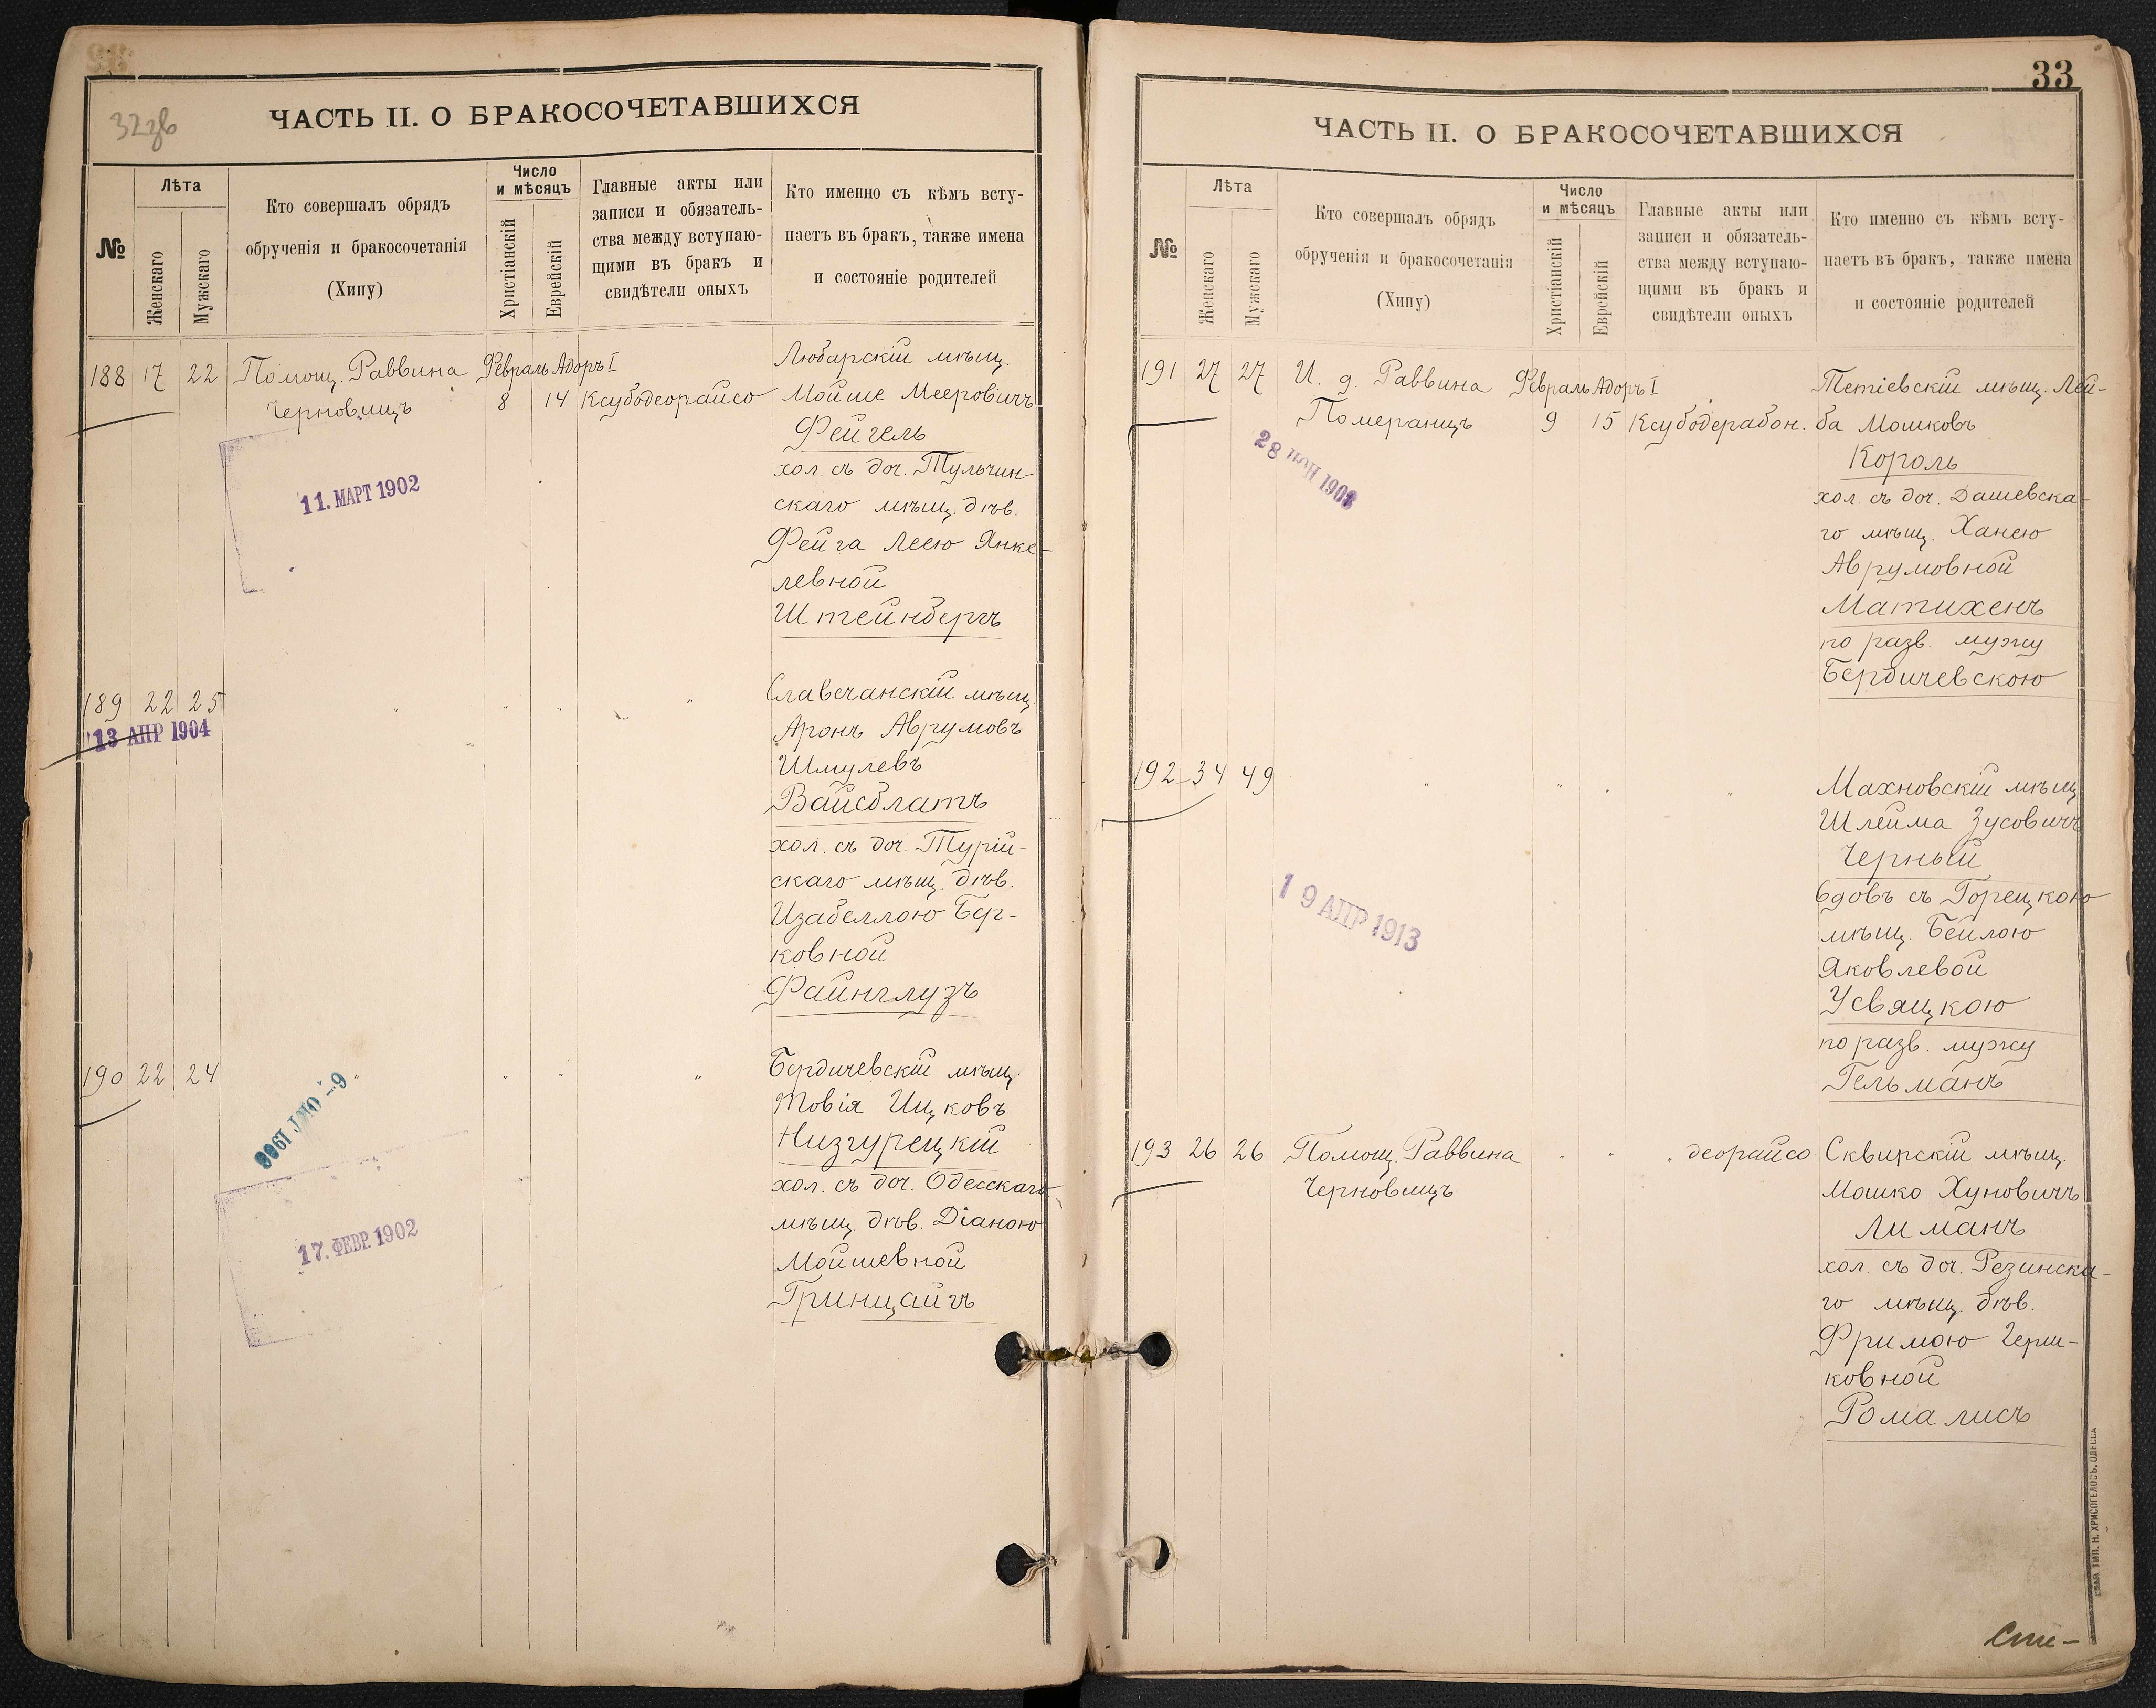 32 зв
ЧАСТЬ II. О БРАКОСОЧЕТАВШИХСЯ
№
Лѣта
Женскаго
Мужскаго
Кто совершалъ обрядъ
обрученія и бракосочетанія
(Хипу)
Число
и мѣсяцъ
Христіанскій
Еврейскій
Главные акты или
записи и обязатель-
ства между вступаю-
щими въ бракъ и
свидѣтели оныхъ
Кто именно съ кѣмъ всту-
паетъ въ бракъ, также имена
и состояніе родителей
188 17 22 Помощ. Раввина Февраль Адоръ I Любарскій мѣщ.
Черновицъ 8 14 Ксубодеорайсо Мойше Мееровичъ
Фейгель
хол. съ доч. Тульчин-
скаго мѣщ. дѣв.
Фейга Леею Янке-
левной
Штейнбергъ
11. МАРТ 1902
189 22 25 " " " " Славечанскій мѣщ.
13 АПР 1904
Аронъ Аврумовъ
Шмулевъ
Вайсблатъ
хол. съ доч. Турій-
скаго мѣщ. дѣв.
Изабеллою Бер-
ковной
Файнглузъ
190 22 24 " " " " Бердичевскій мѣщ.
Товія Ицковъ
Низгурецкій
хол. съ доч. Одесскаго
мѣщ. дѣв. Діаною
Мойшевной
Гринцайгъ
17. ФЕВР. 1902
33
ЧАСТЬ II. О БРАКОСОЧЕТАВШИХСЯ
№
Лѣта
Женскаго
Мужскаго
Кто совершалъ обрядъ
обрученія и бракосочетанія
(Хипу)
Число
и мѣсяцъ
Христіанскій
Еврейскій
Главные акты или
записи и обязатель-
ства между вступаю-
щими въ бракъ и
свидѣтели оныхъ
Кто именно съ кѣмъ всту-
паетъ въ бракъ, также имена
и состояніе родителей
191 27 27 И. д. Раввина Февраль Адоръ I Тетіевскій мѣщ. Лей-
Померанцъ 9 15 Ксубодерабон. ба Мошковъ
Король
хол съ доч. Дашевска-
го мѣщ. Ханею
Аврумовной
Матихенъ
по разв. мужу
Бердичевскою
192 34 49 " " " " Махновскій мѣщ
Шлейма Зусовичъ
Черный
вдовъ съ Горецкою
мѣщ. Бейлою
Яковлевой
Усвяцкою
по разв. мужу
Гельманъ
19 АПР 1913
193 26 26 Помощ. Раввина " " " деорайсо Сквирскій мѣщ.
Черновицъ Мошко Хуновичъ
Лиманъ
хол. съ доч. Резинска-
го мѣщ. дѣв.
Фримою Герш-
ковной
Ромалисъ
СЛАВ. ТИП. Н. ХРИСОГЕЛОСЪ, ОДЕССА